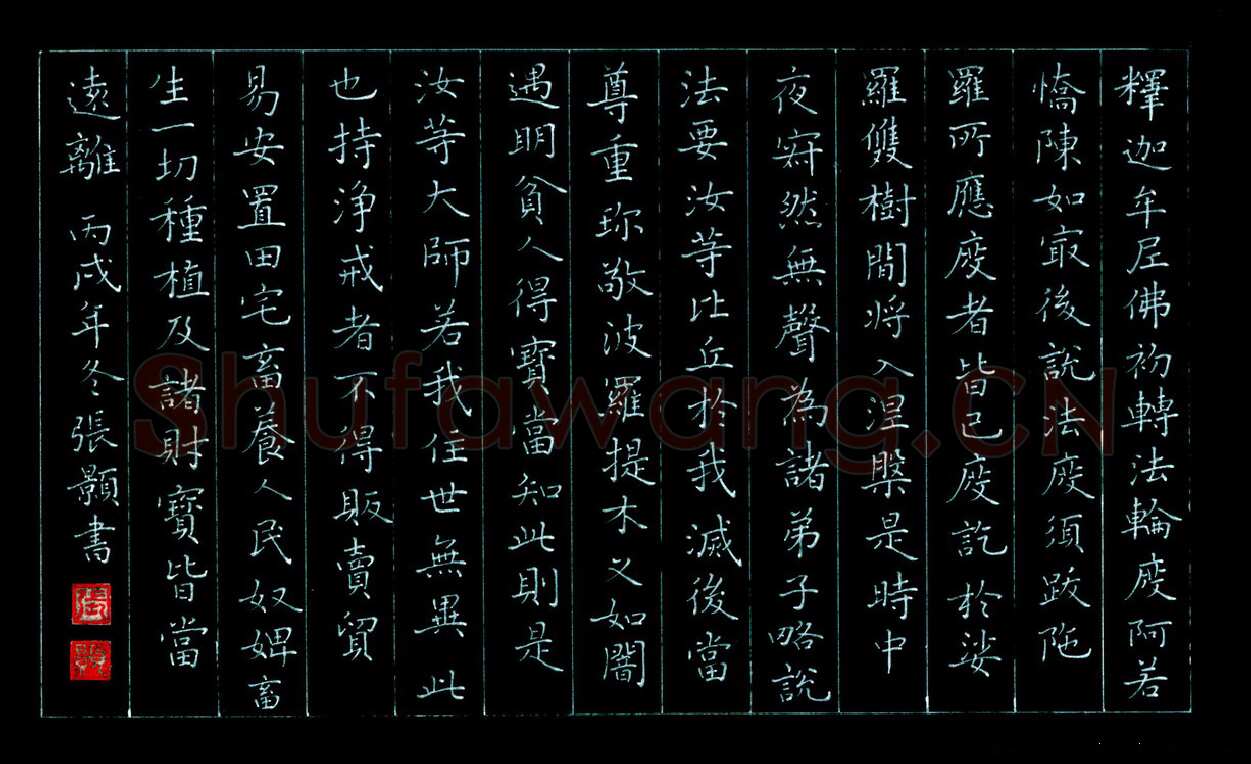 釋迦牟尼佛初轉法輪度阿若
憍陳如寂後說法度須跋陁
羅所應度者皆已度訖於娑
羅雙樹間將入涅槃是時中
夜寂然無聲為諸弟子略說
法要汝等比丘於我滅後當
尊重珎敬波羅提木叉如闇
遇明貧人得寶當知此則是
汝等大師若我住世無異此
也持淨戒者不得販賣貿
易安置田宅畜養人民奴婢畜
生一切種植及諸財寶皆當
遠離 丙戌年冬張顥書
Shufawang.CN